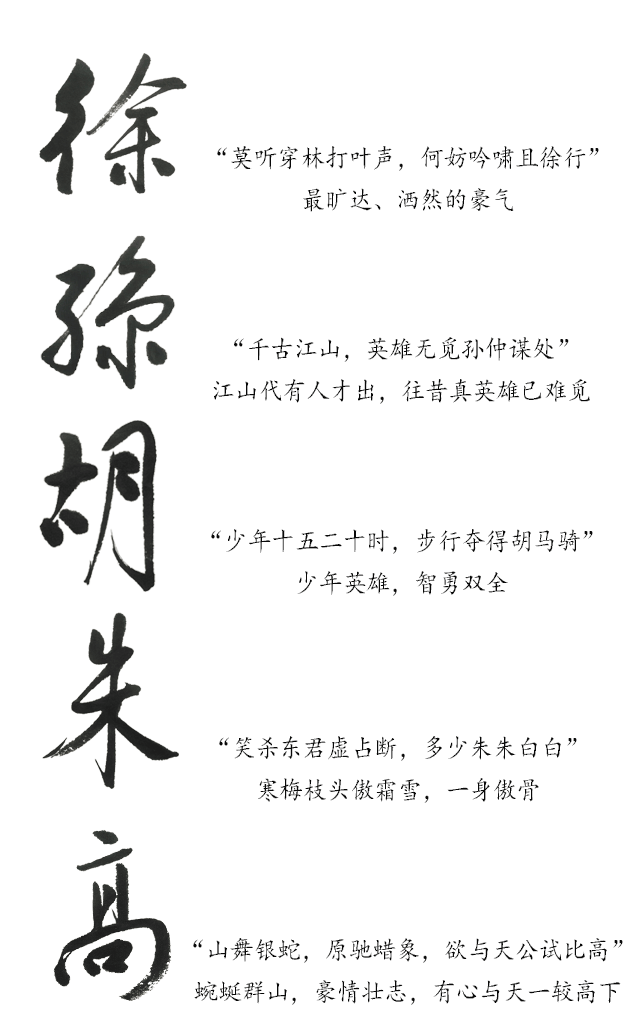 徐
“莫听穿林打叶声，何妨吟啸且徐行”
最旷达、洒然的豪气
孫
“千古江山，英雄无觅孙仲谋处”
江山代有人才出，往昔真英雄已难觅
胡
“少年十五二十时，步行夺得胡马骑”
少年英雄，智勇双全
朱
“笑杀东君虚占断，多少朱朱白白”
寒梅枝头傲霜雪，一身傲骨
高
“山舞银蛇，原驰蜡象，欲与天公试比高”
蜿蜒群山，豪情壮志，有心与天一较高下